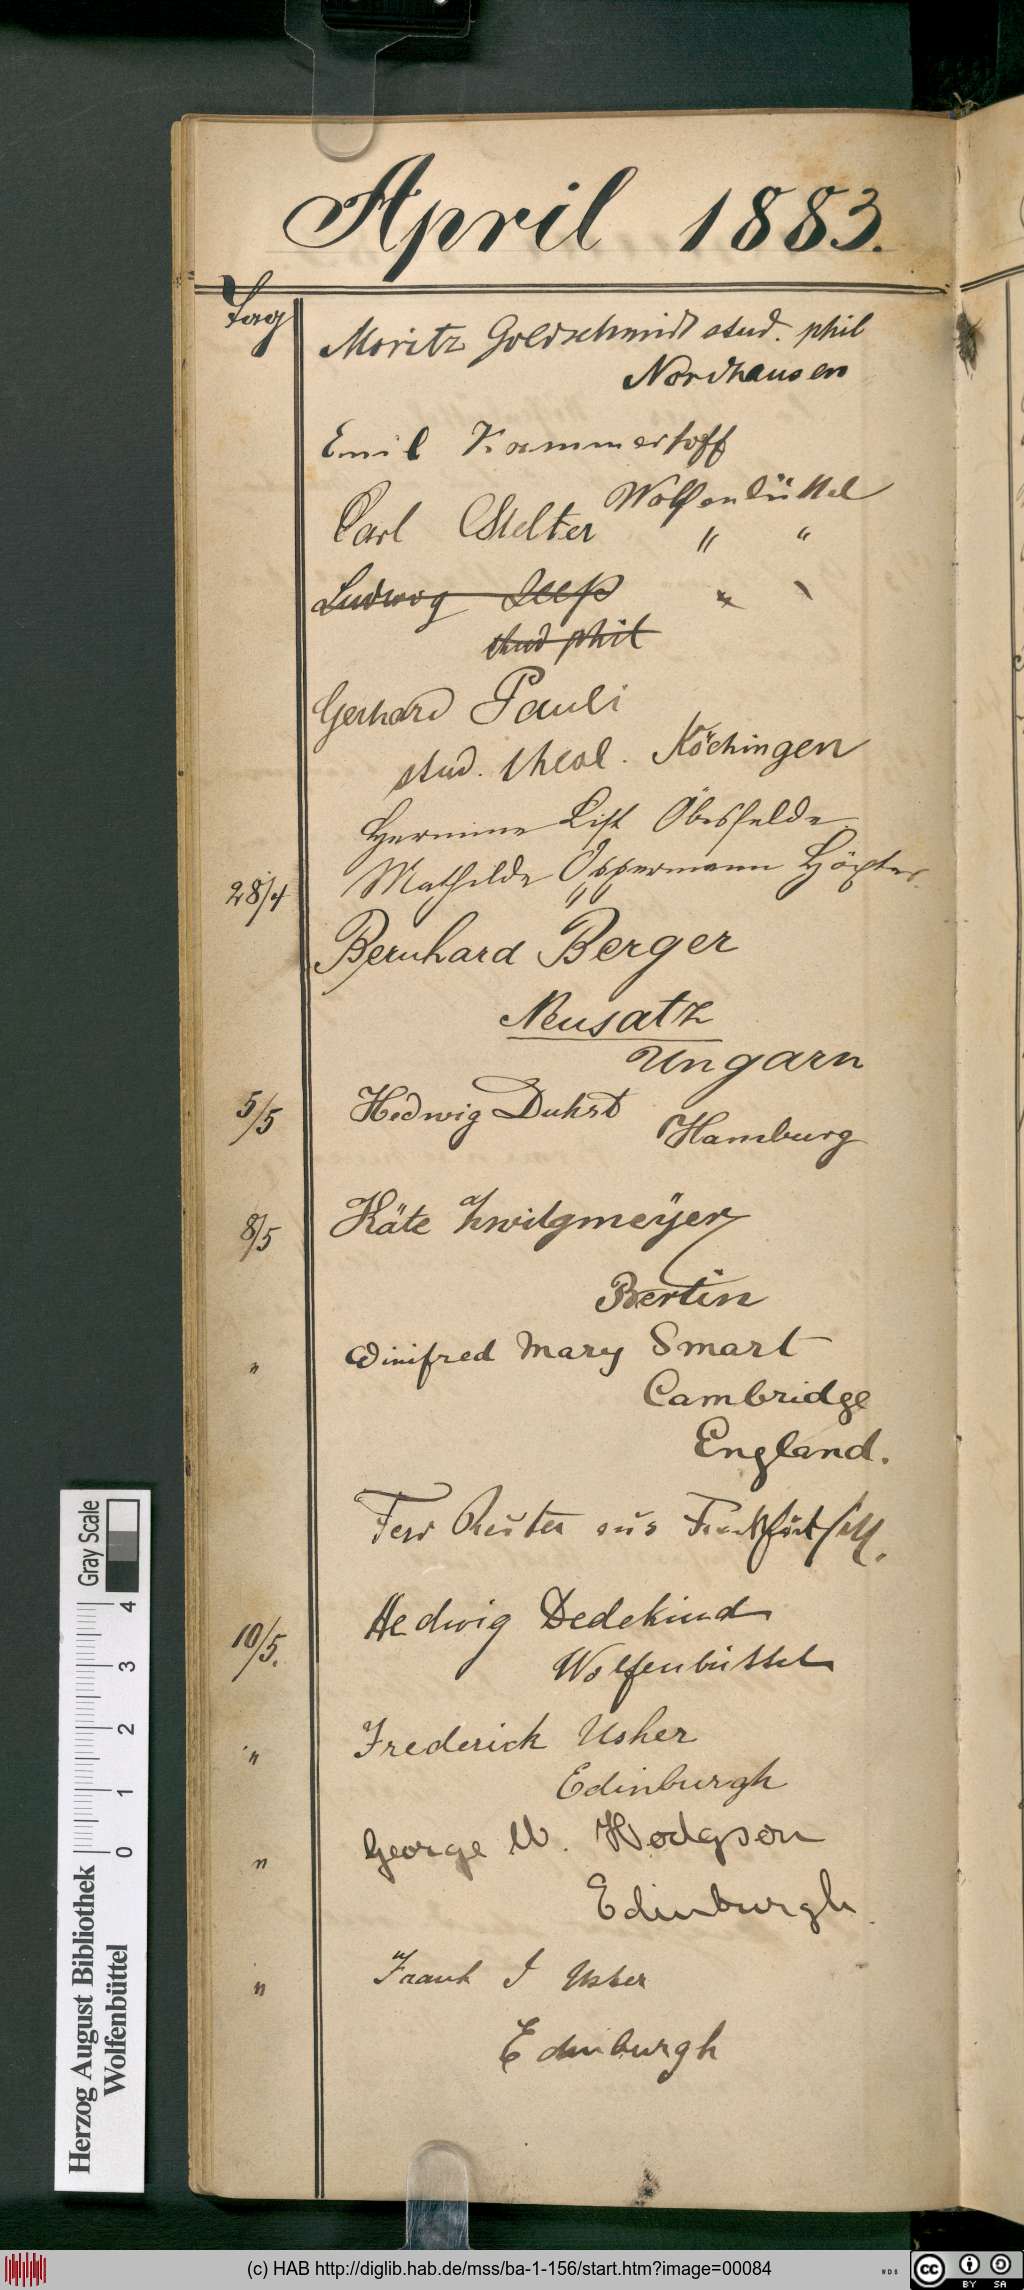 April 1883.
Tag
Moritz Goldschmidt stud. phil
Nordhausen
Emil Kammerhoff
Wolfenbüttel
Carl Stelter " "
Ludwig Seep " "
stud phil
Gerhard Pauli
stud. theol. Köchingen
Hermine List Öbisfelde
28/4 Mathilde Oppermann Höxter.
Bernhard Berger
Neusatz
Ungarn
5/5 Hedwig Duhst
Hamburg
8/5 Käte Zwilgmeÿer
Berlin
" Winifred Mary Smart
Cambridge
England.
Ferd Reuter aus Frankfurt a/M.
10/5. Hedwig Dedekind
Wolfenbüttel
" Frederick Usher
Edinburgh
" George W. Hodgson
Edinburgh
" Frank J Usher
Edinburgh
Gray Scale
0 1 2 3 4
Herzog August Bibliothek
Wolfenbüttel
(c) HAB http://diglib.hab.de/mss/ba-1-156/start.htm?image=00084
cc BY SA